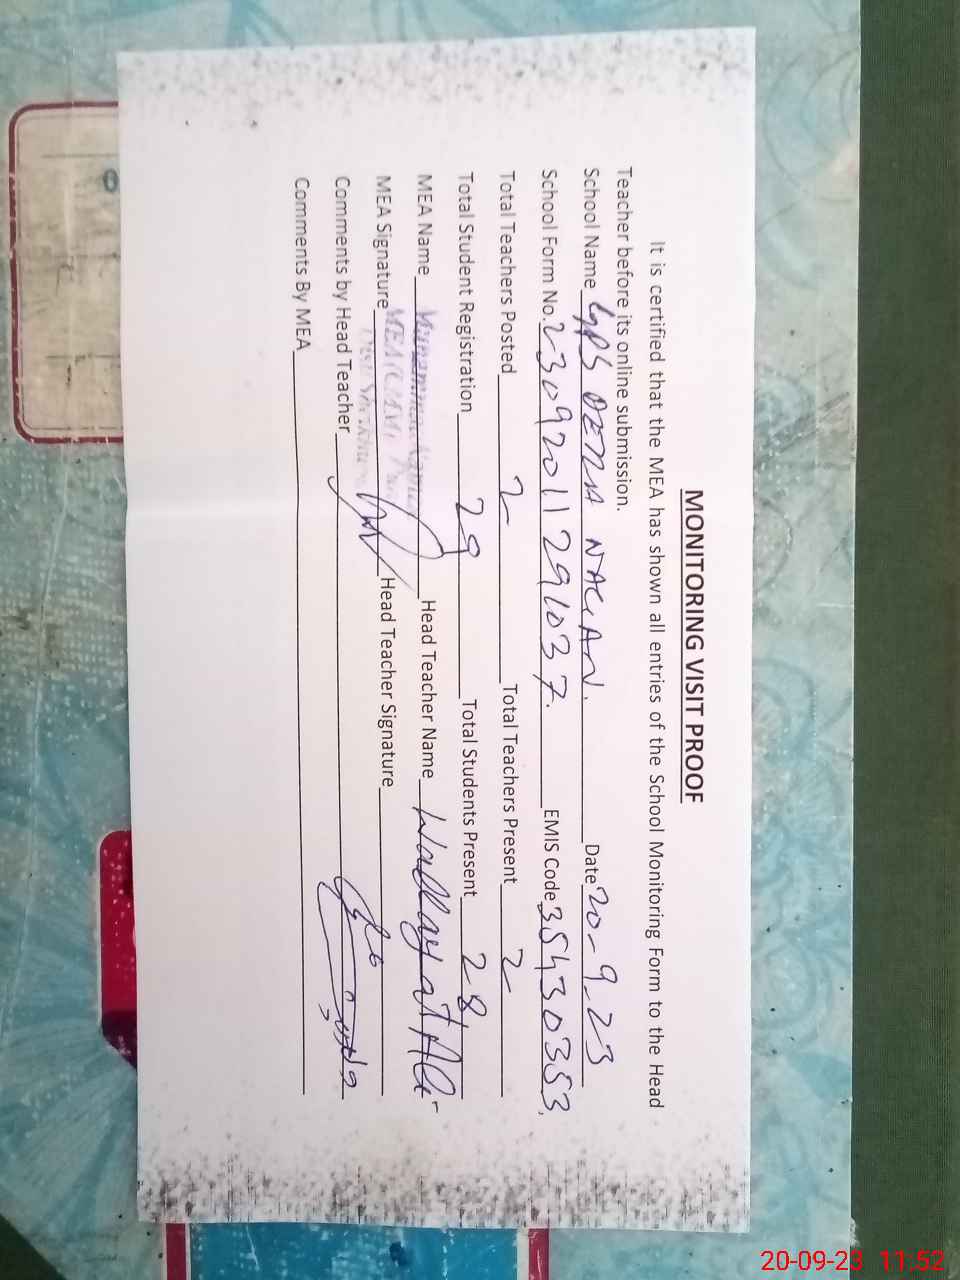 MONITORING VISIT PROOF
It is certified that the MEA has shown all entries of the School Monitoring Form to the Head
Teacher before its online submission.
School Name GPS DERA NAGAN. Date 20-9-23
School Form No. 23092011291037. EMIS Code 35430353
Total Teachers Posted 2 Total Teachers Present 2
Total Student Registration 29 Total Students Present 28
MEA Name Head Teacher Name Wallayat Ali
MEA Signature Head Teacher Signature
Comments by Head Teacher
Comments By MEA
20-09-23 11:52